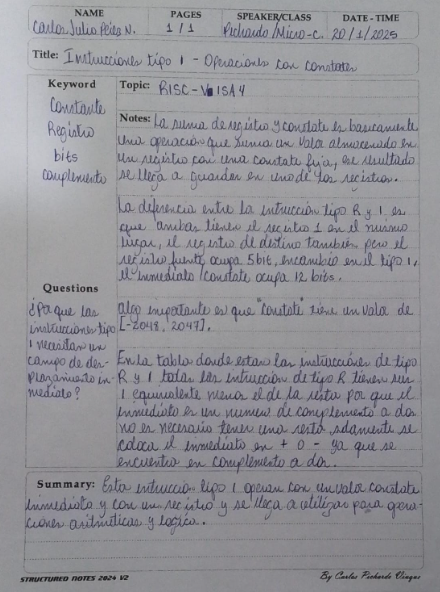 NAME PAGES SPEAKER/CLASS DATE - TIME
Carlos Julio Pérez N. 1 / 1 Pichardo /Micro-C. 20/1/2025
Title: Instrucciones tipo I - Operaciones con constates
Keyword
Constante
Registro
bits
complemento
Topic: RISC-V ISA4
Notes: La suma de registro y constate es basicamente
una operacion que suma un valor almacenado en
un registro con una constate fija, ese resultado
se llega a guardar en uno de los registros.
La diferencia entre la intruccion tipo R y I, es
que ambas tienen el registro 1 en el mismo
lugar, el registro de destino tambien pero el
registro fuente ocupa 5bit, encambio en el tipo I,
el inmediato/constate ocupa 12 bits.
Questions
¿Por que las
instrucciones tipo
I necesitan un
campo de des-
plazamiento in-
mediato?
algo importante es que "constate" tiene un valor de
[-2048, 2047].
En la tabla donde estan las instrucciones de tipo
R y I todas las intruccion de tipo R tienen sus
I equivalente menos el de la resta por que el
inmediato es un numero de complemento a dos
no es necesario tener una resta, solamente se
coloca el inmediato en + o - ya que se
encuentra en complemento a dos.
Summary: Esta intruccion tipo I operan con un valor constate
inmediato y con un registro y se llega a utilizar para opera-
ciones aritmeticas y logica.
STRUCTURED NOTES 2024 V2 By Carlos Pichardo Vinque